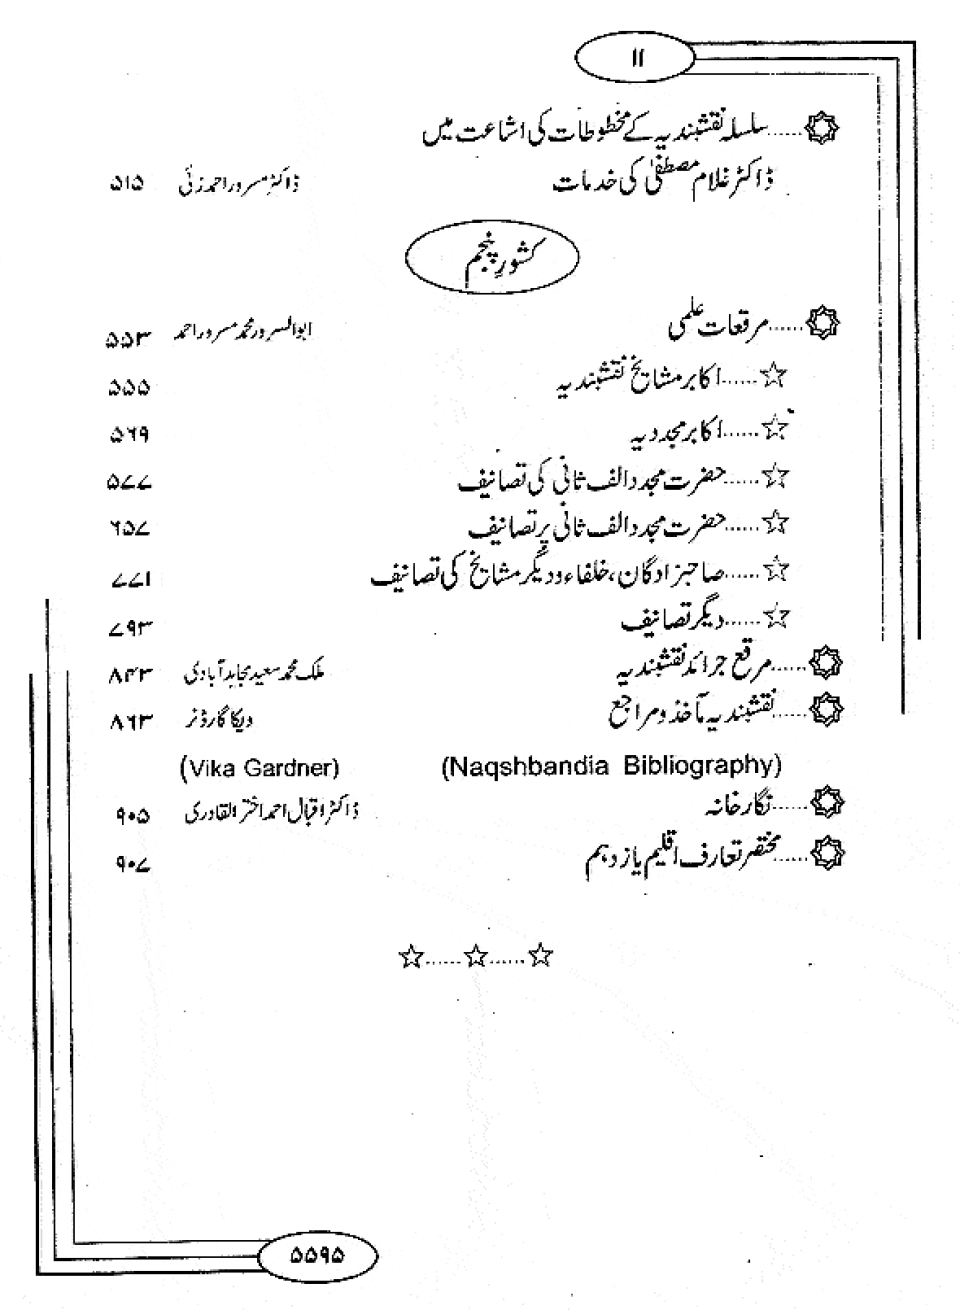 ۱۱
سلسلہ نقشبندیہ کے مخطوطات کی اشاعت میں
ڈاکٹر غلام مصطفیٰ کی خدمات ڈاکٹر مسرور احمد زئی ۵۱۵
کشورِ پنجم
......مرقعات علمی ابوالسرور محمد مسرور احمد ۵۵۳
☆......اکابر مشایخ نقشبندیہ ۵۵۵
☆......اکابر مجددیہ ۵۶۹
☆......حضرت مجدد الف ثانی کی تصانیف ۵۷۷
☆......حضرت مجدد الف ثانی پر تصانیف ۶۵۷
☆......صاحبزادگان، خلفاء و دیگر مشایخ کی تصانیف ۷۷۱
☆......دیگر تصانیف ۷۹۳
......مرقع جرائد نقشبندیہ ملک محمد سعید مجاہد آبادی ۸۴۳
......نقشبندیہ مآخذ و مراجع ویکا گارڈنر ۸۶۳
(Naqshbandia Bibliography) (Vika Gardner)
......نگار خانہ ڈاکٹر اقبال احمد اختر القادری ۹۰۵
......مختصر تعارف اقلیم یازدہم ۹۰۷
☆......☆......☆
۵۵۹۵